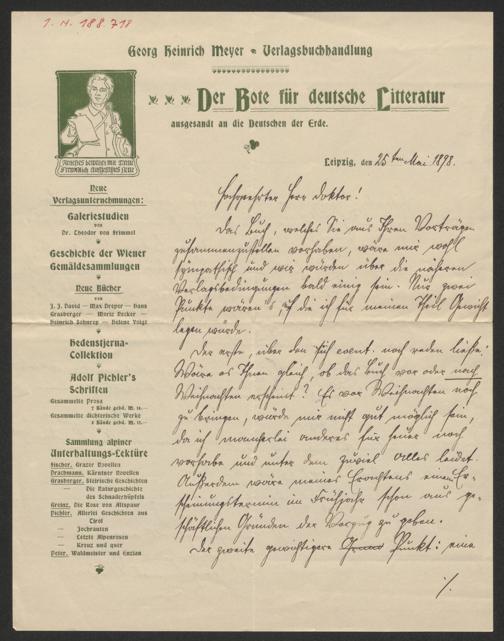 I. N. 188.718
Georg Heinrich Meyer Verlagsbuchhandlung
Der Bote für deutsche Litteratur
ausgesandt an die Deutschen der Erde.
Leipzig, den 25ten Mai 1898.
Neue
Verlagsunternehmungen:
Galeriestudien
von
Dr. Theodor von Frimmel
Geschichte der Wiener
Gemäldesammlungen
Neue Bücher
von
J. J. David — Max Dreyer — Hans
Grasberger — Moriz Necker —
Heinrich Schurtz — Helene Voigt
Hedenstjerna-
Collektion
Adolf Pichler's
Schriften
Gesammelte Prosa
Gesammelte dichterische Werke
Sammlung alpiner
Unterhaltungs-Lektüre
Fischer, Grazer Novellen
Drachmann, Kärntner Novellen
Grasberger, Steirische Geschichten
— Die Naturgeschichte
des Schnaderhüpfels
Greinz, Die Rose von Altspaur
Pichler, Allerlei Geschichten aus
Tirol
— Jochrauten
— Letzte Alpenrosen
— Kreuz und quer
Peter, Waldmeister und Enzian
Hochgeehrter Herr Doktor!
Das Buch, welches Sie aus Ihren Vorträgen
zusammenzustellen vorhaben, wäre mir wohl
sympathisch und wir würden über die näheren
Verlagsbedingungen bald einig sein. Nur zwei
Punkte wären es, auf die ich für meinen Theil Gewicht
legen würde.
Der erste, über den sich event. noch reden ließe:
Wäre es Ihnen gleich, ob das Buch vor oder nach
Weihnachten erscheint? Es vor Weihnachten noch
zu bringen, würde mir nicht gut möglich sein,
da ich mancherlei anderes für heuer noch
vorhabe und unter dem zuviel Alles leidet.
Außerdem wäre meines Erachtens einem Er-
scheinungstermin im Frühjahr schon aus ge-
schäftlichen Gründen der Vorzug zu geben.
Der zweite gewichtigere Punkt: eine
./.